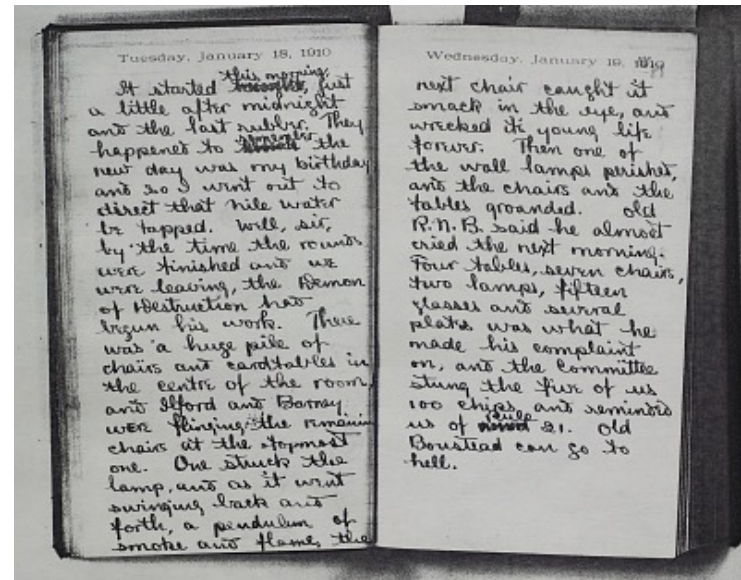 Tuesday, January 18, 1910
It started this morning, just
a little after midnight
and the last rubber. They
happened to remember the
new day was my birthday
and so I went out to
direct that Nile water
be tapped. Well, sir,
by the time the rounds
were finished and we
were leaving, the Demon
of Destruction had
begun his work. There
was a huge pile of
chairs and cardtables in
the centre of the room,
and Ilford and Barney
were flinging the remaining
chairs at the topmost
one. One struck the
lamp, and as it went
swinging back and
forth, a pendulum of
smoke and flame, the
Wednesday, January 19, 1910
next chair caught it
smack in the eye, and
wrecked its young life
forever. Then one of
the wall lamps perished,
and the chairs and the
tables groaned. Old
R.N.B. said he almost
cried the next morning.
Four tables, seven chairs,
two lamps, fifteen
glasses and several
plates was what he
made his complaint
on, and the Committee
stung the five of us
100 chips, and reminded
us of Rule 21. Old
Boustead can go to
hell.